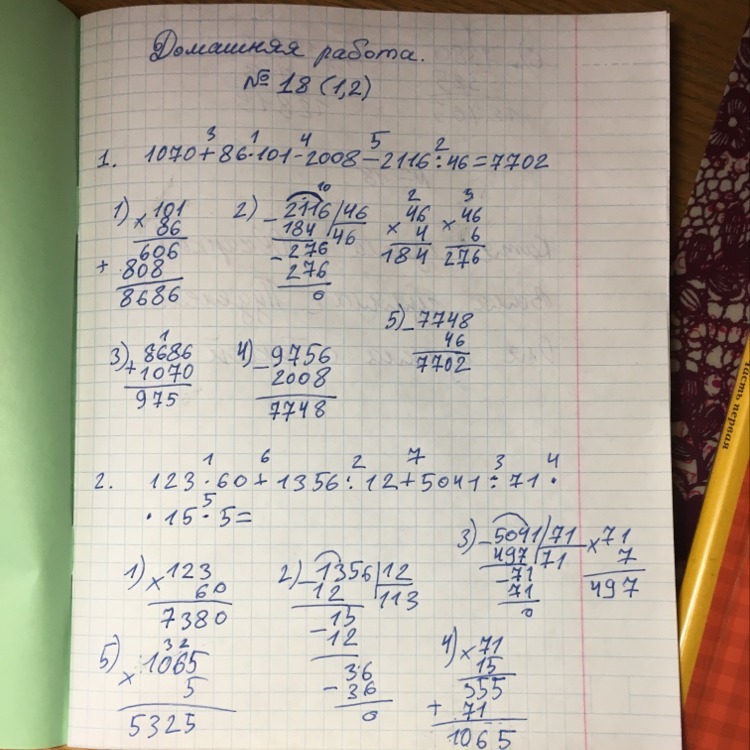 Домашняя работа.
№ 18 (1,2)
3 1 4 5 2
1. 1070+86·101-2008-2116:46=7702
1) × 101
86
606
+ 808
8686
2) 10
- 2116 | 46
184 | 46
- 276
276
0
2
× 46
4
184
3
× 46
6
276
3) 1
+ 8686
1070
975
4) - 9756
2008
7748
5) - 7748
46
7702
1 6 2 7 3 4
2. 123·60+1356:12+5041:71·
5
·15·5=
1) × 123
60
7380
2) - 1356 | 12
12 | 113
- 15
12
36
- 36
0
3) - 5041 | 71
497 | 71
- 71
71
0
× 71
7
497
5) 32
× 1065
5
5325
4) × 71
15
355
+ 71
1065
часть первая